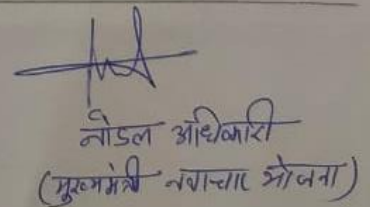 नोडल अधिकारी
(मुख्यमंत्री नवाचार योजना)